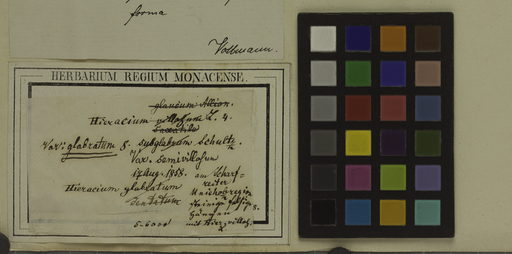 forma
Vollmann.
HERBARIUM REGIUM MONACENSE.
glaucum Allion.
Hieracium villosum L. 4.
Var: glabratum 8. subglabrum Schultz
Var. semivillosum
17 Aug. 1858. am Scharf-
Hieracium glabratum reiter
dentatum
5-6000
mit Hier. villos.